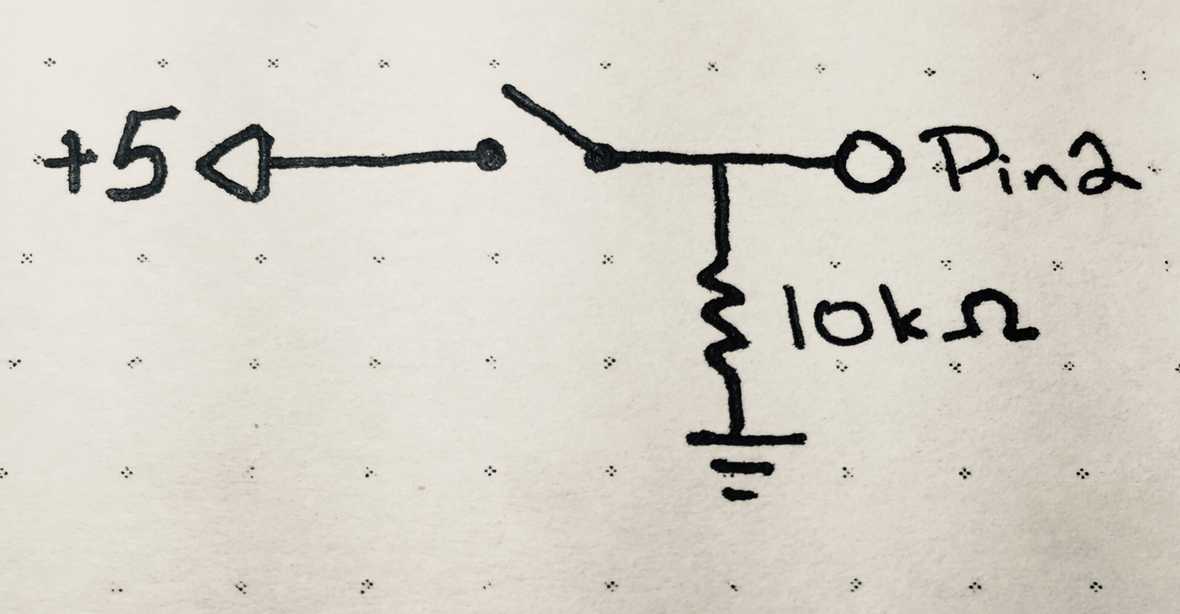 +5
Pin2
10kΩ